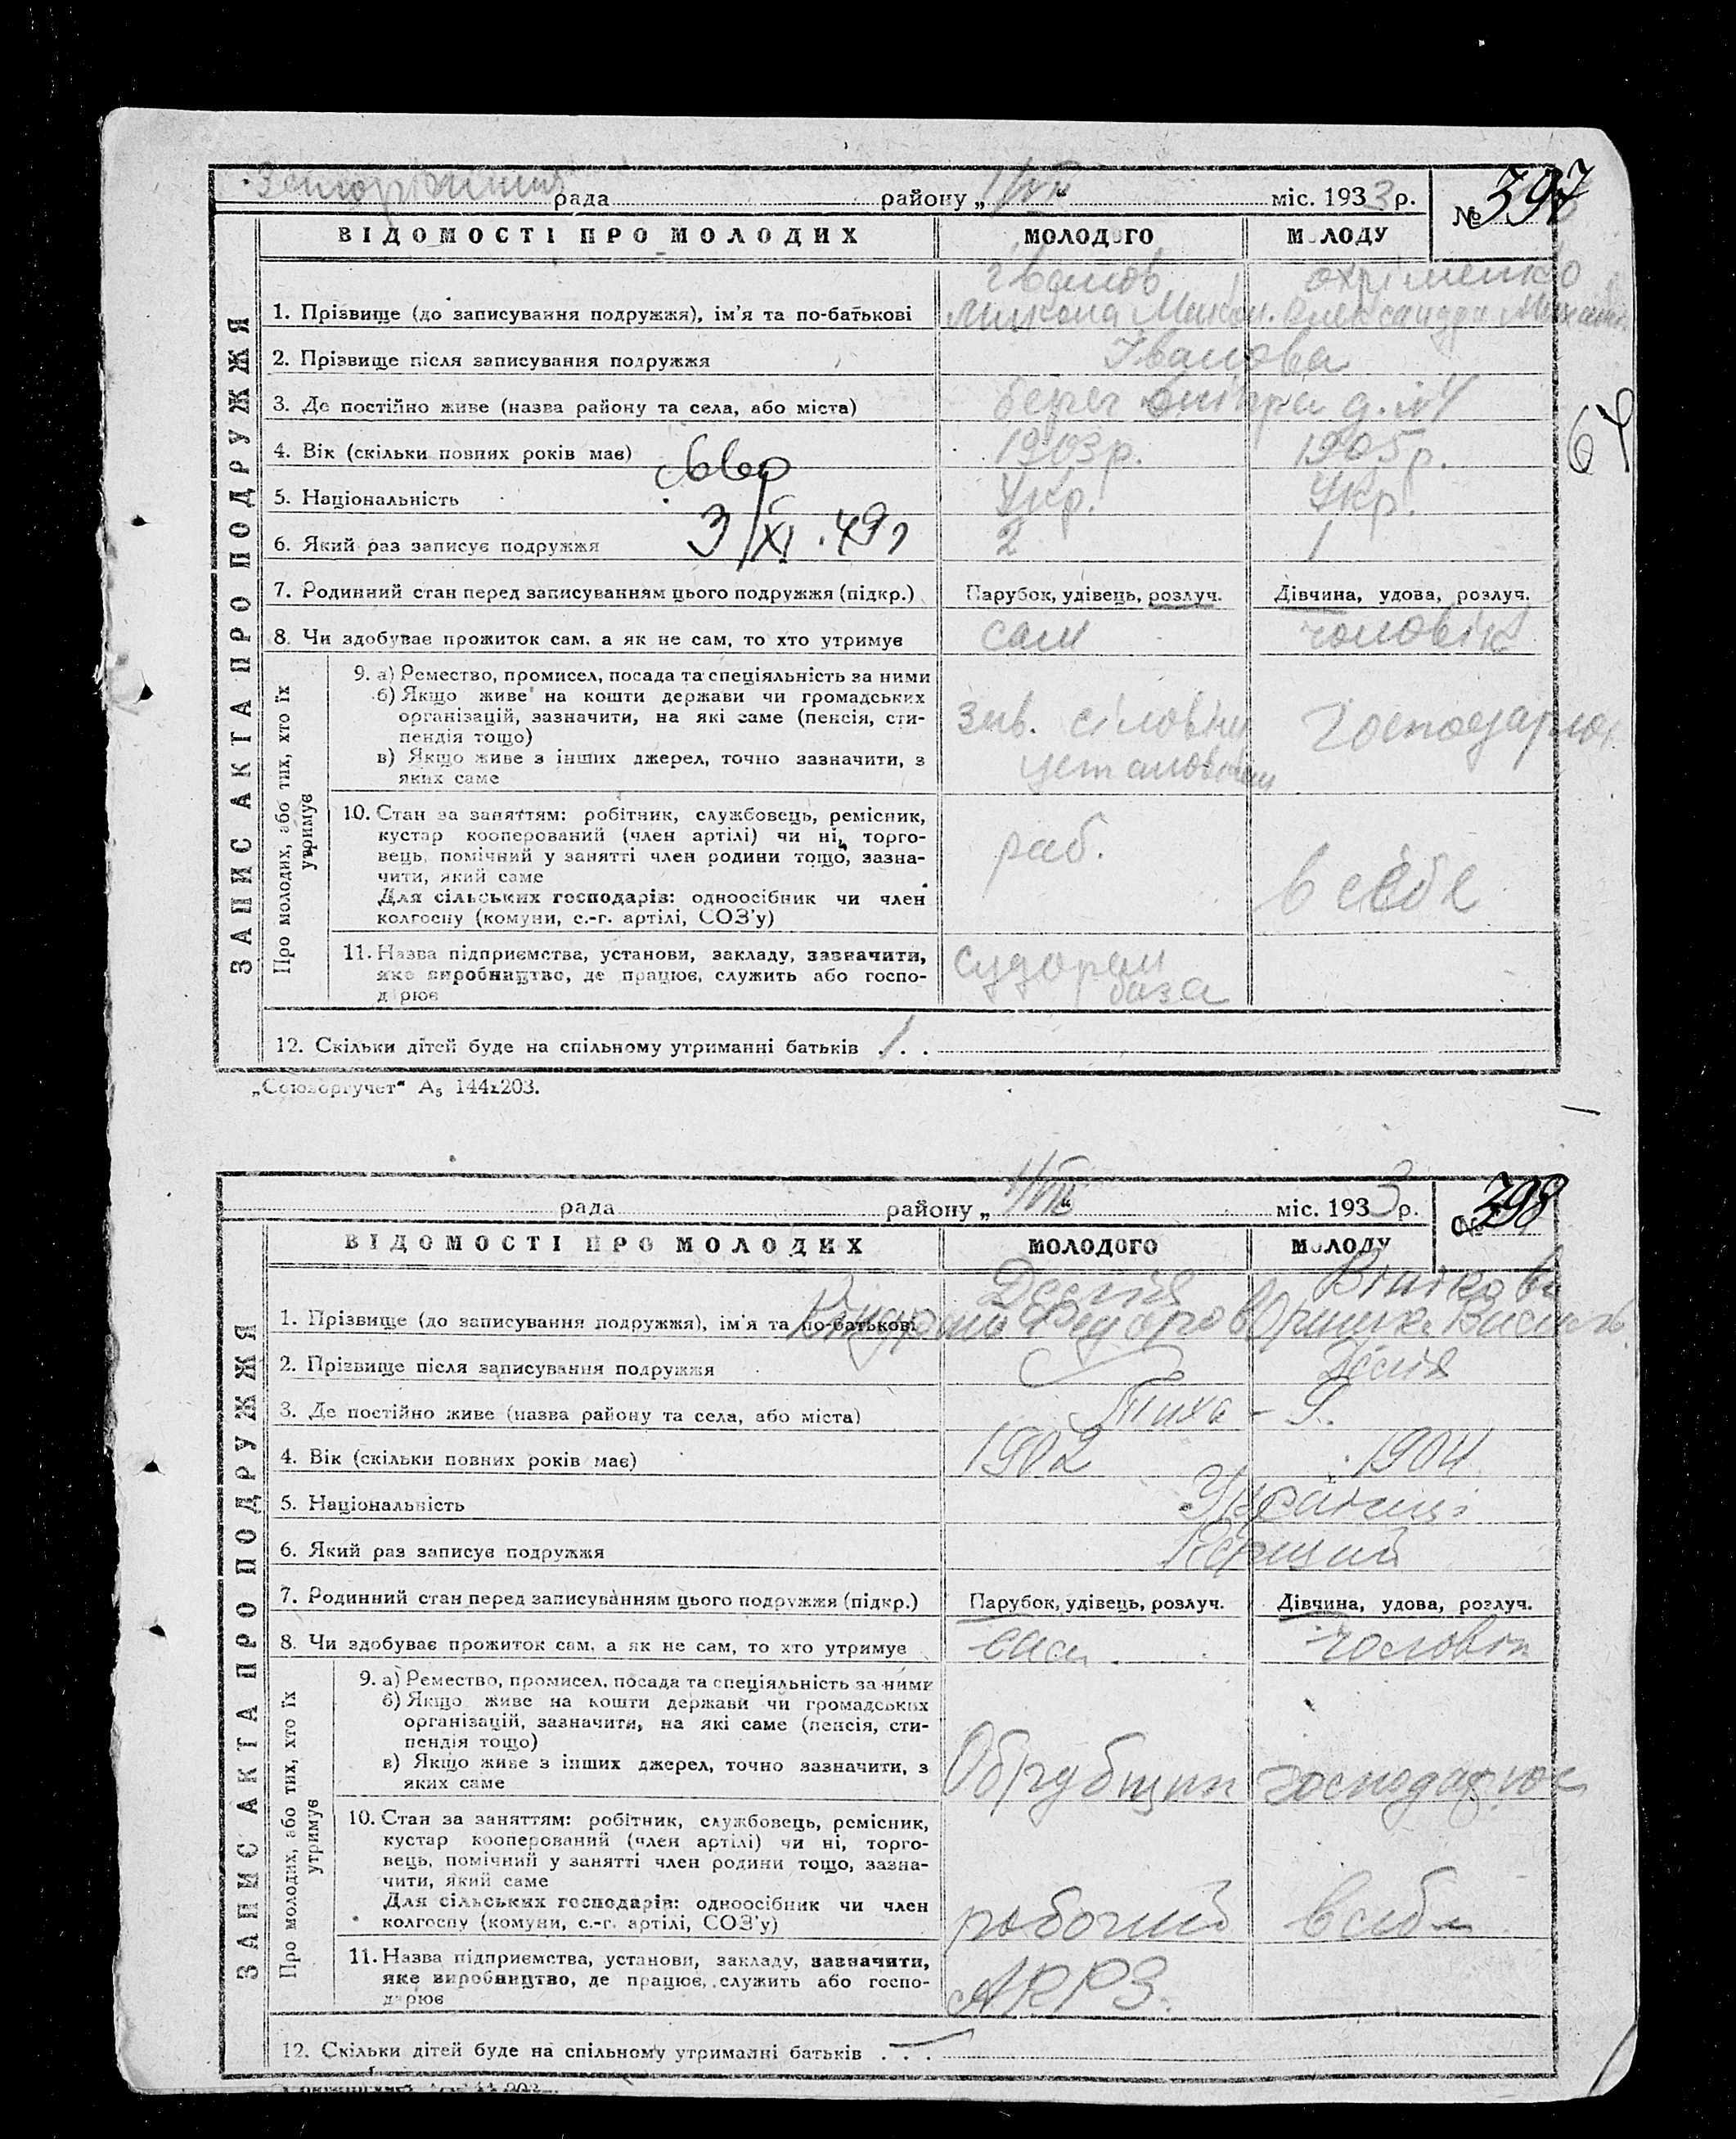 рада району „1/VII“ міс. 1933 р. № 397
ВІДОМОСТІ ПРО МОЛОДИХ МОЛОДОГО МОЛОДУ
Іванов Охріменко
1. Прізвище (до записування подружжя), ім'я та по-батькові Микола Микол. Олександра
2. Прізвище після записування подружжя Іванова
3. Де постійно живе (назва району та села, або міста) берег Дніпра д. №4
4. Вік (скільки повних років має) 1903 р. 1905 р.
5. Національність Укр. Укр.
6. Який раз записує подружжя 3/XI.49 2 1
7. Родинний стан перед записуванням цього подружжя (підкр.) Парубок, удівець, розлуч. Дівчина, удова, розлуч.
8. Чи здобуває прожиток сам, а як не сам, то хто утримує сам чоловік
ЗАПИС АКТА ПРО ПОДРУЖЖЯ
Про молодих, або тих, хто їх утримує
9. а) Ремество, промисел, посада та спеціяльність за ними
б) Якщо живе на кошти держави чи громадських
організацій, зазначити, на які саме (пенсія, сти-
пендія тощо)
в) Якщо живе з інших джерел, точно зазначити, з
яких саме
10. Стан за заняттям: робітник, службовець, ремісник,
кустар кооперований (член артілі) чи ні, торго-
вець, помічний у занятті член родини тощо, зазна-
чити, який саме
раб. в себе
Для сільських господарів: одноосібник чи член
колгоспу (комуни, с.-г. артілі, СОЗ'у)
11. Назва підприємства, установи, закладу, зазначити,
яке виробництво, де працює, служить або госпо-
дарює
судорем
база
12. Скільки дітей буде на спільному утриманні батьків 1
„Союзоргучет“ А₅ 144х203.
рада району „1/VII“ міс. 1933 р. № 398
ВІДОМОСТІ ПРО МОЛОДИХ МОЛОДОГО МОЛОДУ
1. Прізвище (до записування подружжя), ім'я та по-батькові
2. Прізвище після записування подружжя
3. Де постійно живе (назва району та села, або міста) Тиха - 9.
4. Вік (скільки повних років має) 1902 1904
5. Національність Українці
6. Який раз записує подружжя Перший
7. Родинний стан перед записуванням цього подружжя (підкр.) Парубок, удівець, розлуч. Дівчина, удова, розлуч.
8. Чи здобуває прожиток сам, а як не сам, то хто утримує сам чоловік
ЗАПИС АКТА ПРО ПОДРУЖЖЯ
Про молодих, або тих, хто їх утримує
9. а) Ремество, промисел, посада та спеціяльність за ними
б) Якщо живе на кошти держави чи громадських
організацій, зазначити, на які саме (пенсія, сти-
пендія тощо)
в) Якщо живе з інших джерел, точно зазначити, з
яких саме
Обрубщик
10. Стан за заняттям: робітник, службовець, ремісник,
кустар кооперований (член артілі) чи ні, торго-
вець, помічний у занятті член родини тощо, зазна-
чити, який саме
Для сільських господарів: одноосібник чи член
колгоспу (комуни, с.-г. артілі, СОЗ'у)
робочий в себе
11. Назва підприємства, установи, закладу, зазначити,
яке виробництво, де працює, служить або госпо-
дарює
АРРЗ.
12. Скільки дітей буде на спільному утриманні батьків —